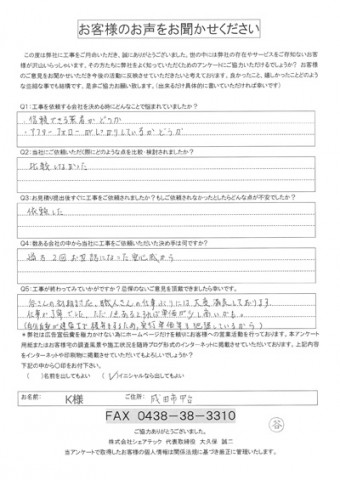 お客様のお声をお聞かせください
この度は弊社に工事をご用命いただき、誠にありがとうございました。世の中には弊社の存在やサービスをご存知ないお客
様が沢山いらっしゃいます。その方たちに弊社をよく知っていただくためのアンケートにご協力いただけるでしょうか? お客様
のご意見をお聞かせいただき今後の活動に反映させていただきたいと考えております。良かったこと、嬉しかったことどのよう
な些細な事でも結構です。是非ご協力お願い致します。(出来るだけ具体的に書いていただければ幸いです)
Q1:工事を依頼する会社を決める時にどんなことで悩まれていましたか?
・信頼できる業者かどうか
・アフターフォローがしっかりしているかどうか
Q2:当社にご依頼いただく際にどのような点を比較・検討されましたか?
比較しなかった
Q3:お見積り提出後すぐに工事をご依頼されましたか?もしご依頼されなかったとしたらどんな点が不安でしたか?
依頼した
Q4:数ある会社の中から当社に工事をご依頼いただいた決め手は何ですか?
過去2回お世話になった安心感から
Q5:工事が終わってみていかがですか?忌憚のないご意見を頂戴できましたら幸いです。
職人さんの仕事ぶりには大変満足しております。
仕事が丁寧でした。ただ
※弊社は広告宣伝費を極力かけない為にホームページだけを頼りにお客様への営業活動を行っております。本アンケート
用紙またはお客様宅の調査風景や施工状況を随時ブログ形式のインターネットに掲載させていただいております。上記内容
をインターネットや印刷物に掲載させていただいてもよろしいでしょうか?
下記の中から○印をお付下さい。
( )名前を出してもよい (✓)イニシャルなら出してもよい
お名前: K様 ご住所: 成田市
FAX 0438-38-3310
ご協力ありがとうございました。
株式会社シェアテック 代表取締役 大久保 誠二
当アンケートで取得したお客様の個人情報は関係法規に基づき厳正に管理いたします。